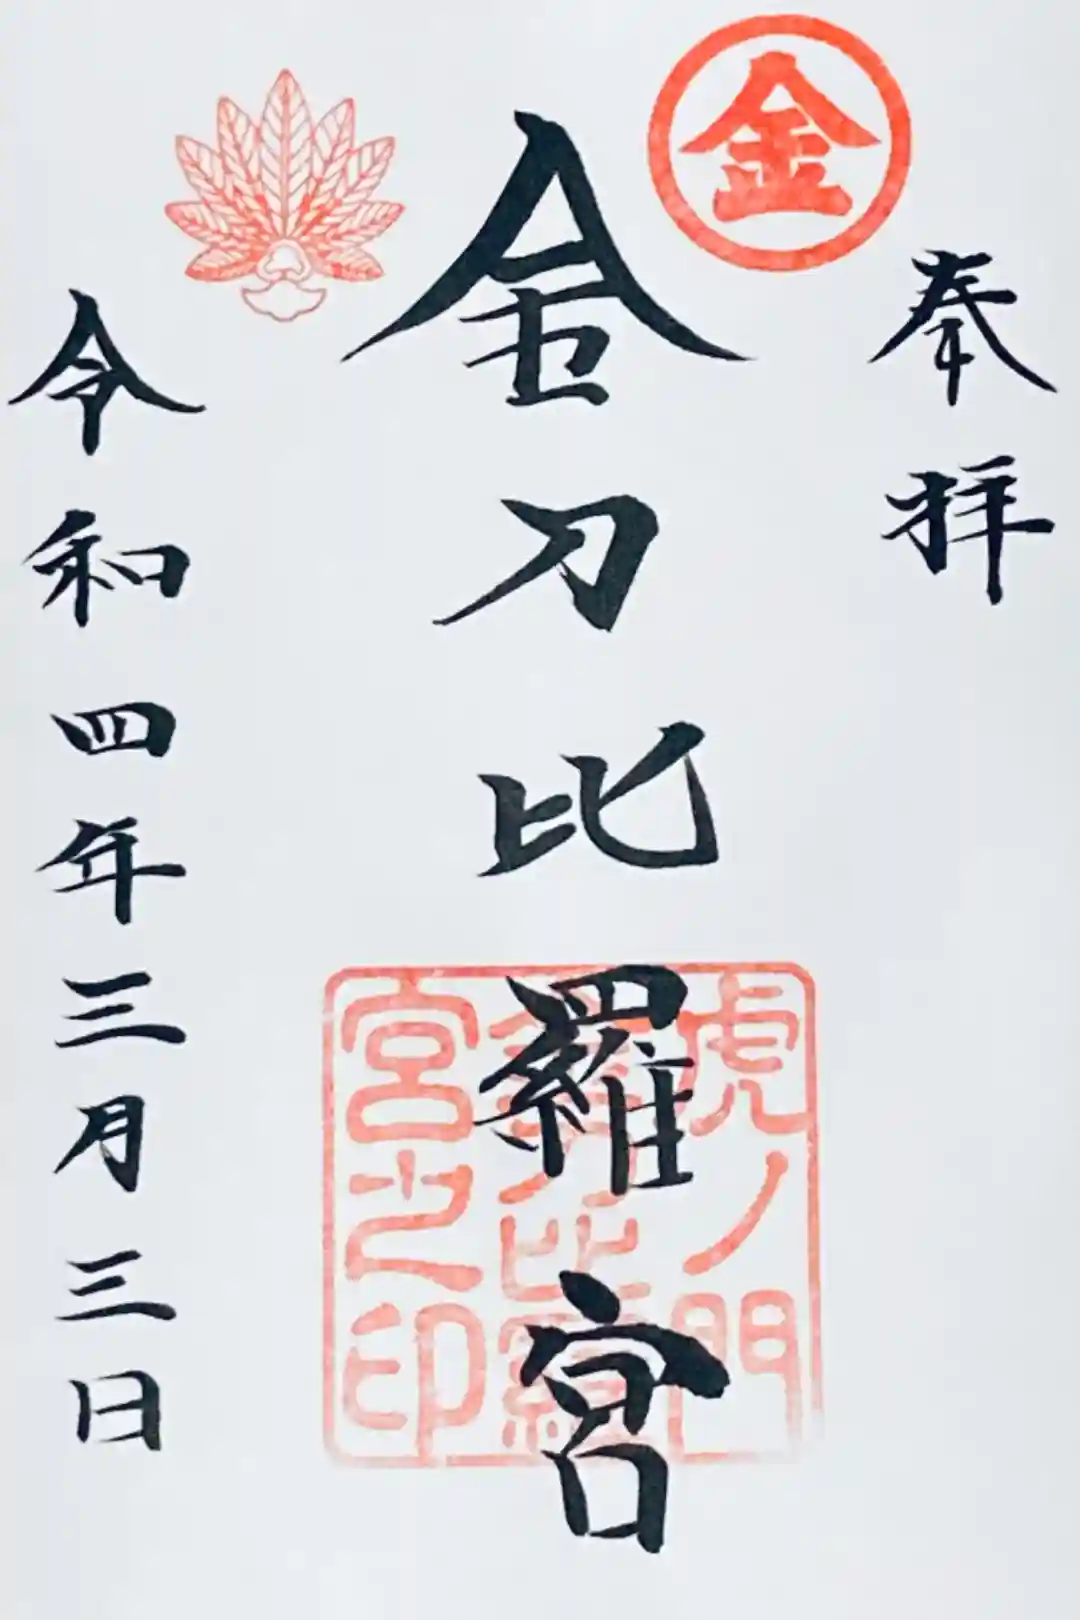 奉拝
金
金刀比羅宮
虎ノ門
金刀比羅
宮之印
令和四年三月三日